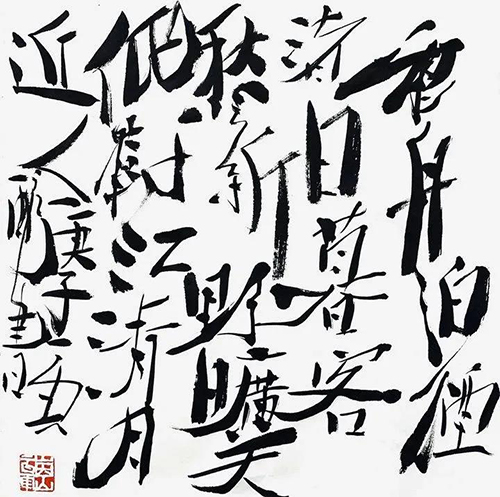 移舟泊煙
渚日暮客
愁新野曠天
低樹江清月
近人
庚子